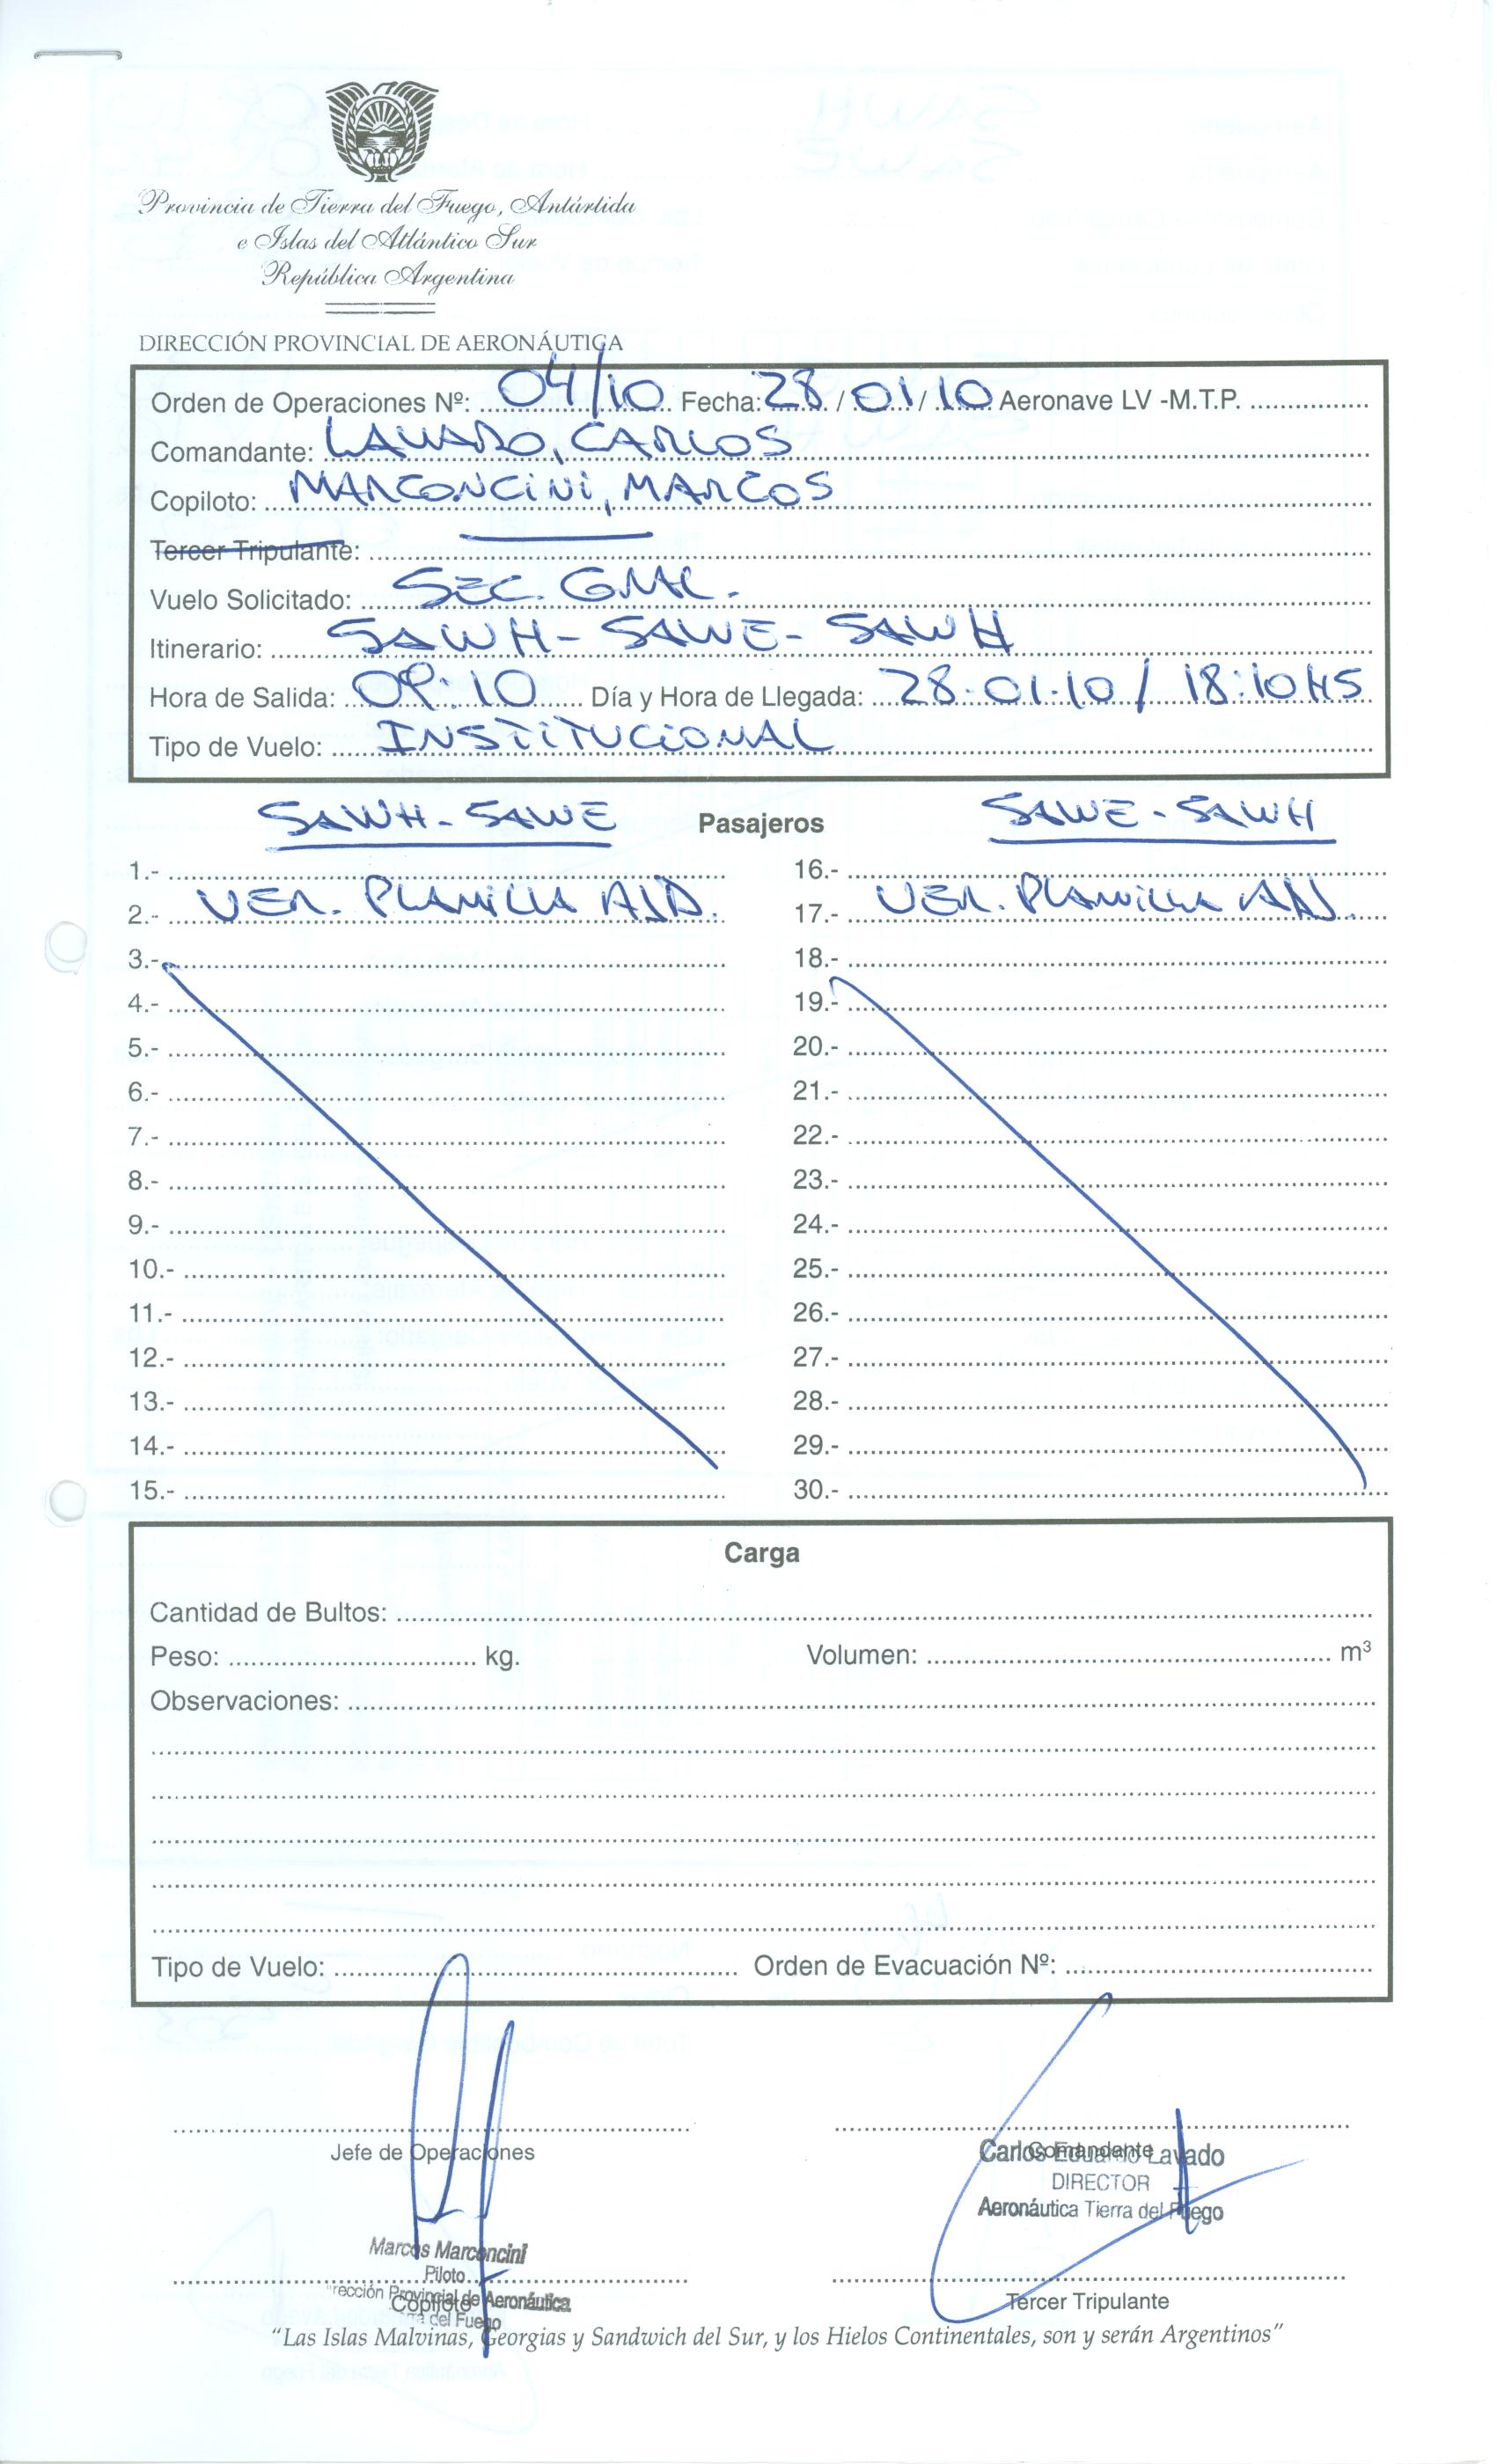 Provincia de Tierra del Fuego, Antártida
e Islas del Atlántico Sur
República Argentina
DIRECCIÓN PROVINCIAL DE AERONÁUTICA
Orden de Operaciones Nº: 04/10 Fecha: 28/01/10 Aeronave LV -M.T.P.
Comandante: LAVADO, CARLOS
Copiloto: MARCONCINI, MARCOS
Tercer Tripulante:
Vuelo Solicitado: SEC. GRAL.
Itinerario: SAWH - SAWE - SAWH
Hora de Salida: 09:10 Día y Hora de Llegada: 28.01.10 / 18:10 HS
Tipo de Vuelo: INSTITUCIONAL
SAWH - SAWE Pasajeros SAWE - SAWH
1.- 16.-
2.- VER. PLANILLA ADJ. 17.- VER. PLANILLA ADJ.
3.- 18.-
4.- 19.-
5.- 20.-
6.- 21.-
7.- 22.-
8.- 23.-
9.- 24.-
10.- 25.-
11.- 26.-
12.- 27.-
13.- 28.-
14.- 29.-
15.- 30.-
Carga
Cantidad de Bultos:
Peso: kg. Volumen: m³
Observaciones:
Tipo de Vuelo: Orden de Evacuación Nº:
Jefe de Operaciones Comandante
Carlos Eduardo Lavado
DIRECTOR
Aeronáutica Tierra del Fuego
Marcos Marconcini
Piloto
rección Provincial de Aeronáutica
Copiloto Tercer Tripulante
del Fuego
"Las Islas Malvinas, Georgias y Sandwich del Sur, y los Hielos Continentales, son y serán Argentinos"